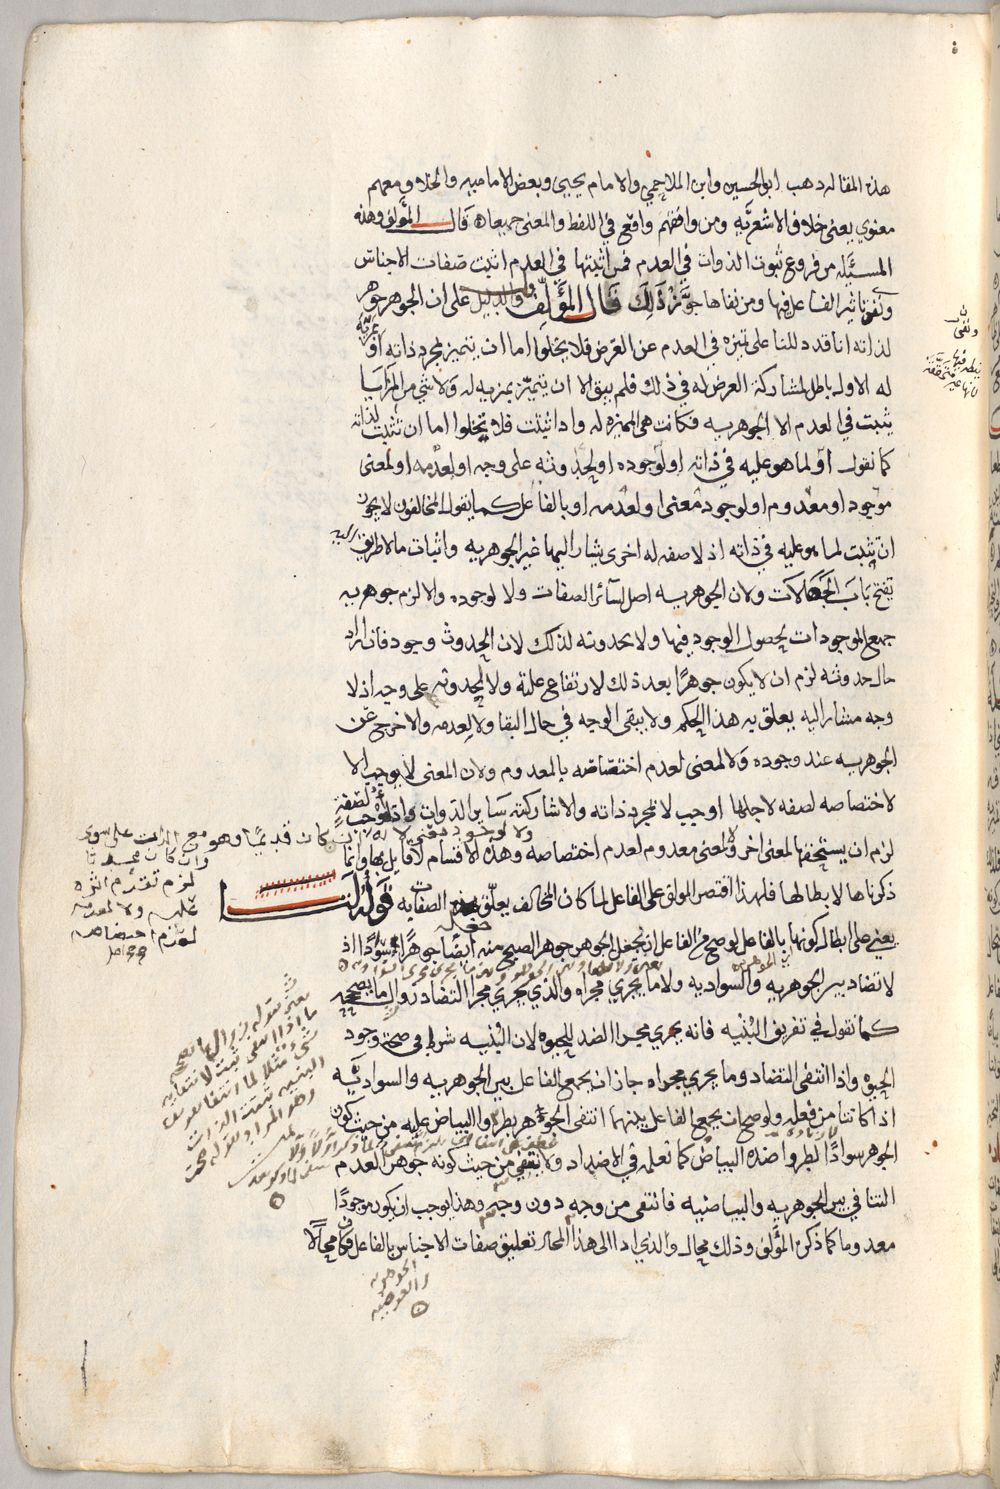 هذه المقاله ذهب ابو الحسين وابن الملاحمي والامام يحيى وبعض الاماميه والخلاف معهم
معنوي يعنى خلاف الاشعريَّه ومن وافقهم واقع في اللفظ والمعنى جميعا ٥ قال المؤلف وهذه
المسئله من فروع ثبوت الذوات في العدم فمن اثبتها في العدم اثبت صفات الاجناس
ونفى تاثير الفاعل فيها ومن نفاها جوَّز ذَلِكَ قَال المؤَلِّف والدليل على ان الجوهر جوهر
لذاته انا قد دللنا على تميزه في العدم عن العرض فلا يخلوا اما ان يتميز لمجرد ذاته او لمزيّه
له الاول باطل لمشاركة العرض له في ذلك فلم يبق الا ان يتميّز بمزيه له ولا شي من المزايا
يثبت في العدم الا الجوهريه فكانت هي المميزه له واذا ثبتت فلا يخلوا اما ان تثبت لذاته
كما نقول او لما هو عليه في ذاته او لوجوده او لحدوثه على وجه او لعدمه او لمعنى
موجود او معدوم او لوجود معنى او لعدمه او بالفاعل كما يقول المخالفون لا يجوز
ان يثبت لما هو عليه في ذاته اذ لا صفه له اخرى يشار اليها غير الجوهريه واثبات مالا طريق اليه
يفتح باب الجَهَالات ولان الجوهريه اصل لسائر الصفات ولا لوجوده والا لزم جوهريه
جميع الموجودات لحصول الوجود فيها ولا لحدوثه لذلك لان الحدوث وجود فان اراد
حال حدوثه لزم ان لا يكون جوهرًا بعد ذلك لارتفاع علته ولا لحدوثه على وجه اذ لا
وجه مشار اليه يعلق به هذا الحكم ولا يبقى الوجه في حال البقا ولا لعدمه والا خرج عن
الجوهريه عند وجوده ولا لمعنى لعدم اختصاصه بالمعدوم ولان المعنى لا يوجب الا
لاختصاصه لصفه لاجلها اوجب لا لمجرد ذاته والا شاركته ساير الذوات واذا وجب لصفة
لزم ان يستحقها لمعنى اخر ولا لمعنى معدوم لعدم اختصاصه وهذه الاقسام لا قايل بها وانما
ذكرناها لابطالها فلهذا اقتصر المولف على الفاعل لما كان المخالف يعلق هذه الصفات به قَولُه
يعني على ابطال كونها بالفاعل لو صح من الفاعل ان يجعل الجوهر جوهر الصح منه ايضا جوهرًا سوادًا اذ
لا تضاد بين الجوهريه والسواديه ولا ما يجري مجراه والذي يجري مجرا التضاد زوال ما يصححه
كما نقول في تفريق البُنيه فانه يجري مجرا الضد للحيوه لان البُنيه شرط في صحة وجود
الحيوه واذا انتفى التضاد وما يجري مجراه جاز ان يجمع الفاعل بين الجوهريه والسواديَّه
اذا كانتا من فعله ولو صح ان يجمع الفاعل بينهما انتفى الجوهر بطروا البياض عليه من حيث كون
الجوهر سوادًا لطروا ضده البياض كما نعلمه في الاضداد ولا ينتفي من حيث كونه جوهر العدم
التنافي بين الجوهريه والبياضيه فانتفى من وجهٍ دون وجهٍ وهذا يوجب ان يكون موجودًا
معدوما كما ذكره المؤلف وذلك محال والذي ادا الى هذا المحال تعليق صفات الاجناس بالفاعل فكان محالًا
الجوهريه
والعرضيه
ونفى
لزم تقدم اثره
عليه ولا لمعدم
لعدم اختصاصه